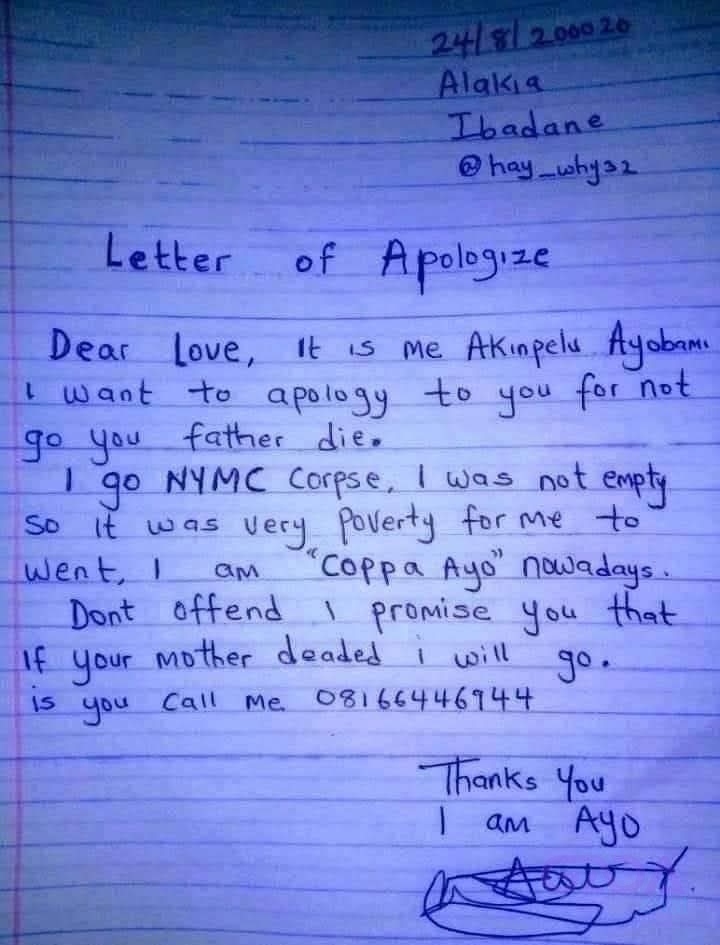 24/8/200020
Alakia
Ibadane
@hay_why32
Letter of Apologize
Dear Love, It is me Akinpelu Ayobami
i want to apology to you for not
go you father die.
I go NYMC Corpse, I was not empty
so it was very poverty for me to
went, I am "Coppa Ayo" nowadays.
Dont offend i promise you that
If your mother deaded i will go.
is you Call me 08166446944
Thanks You
I am Ayo